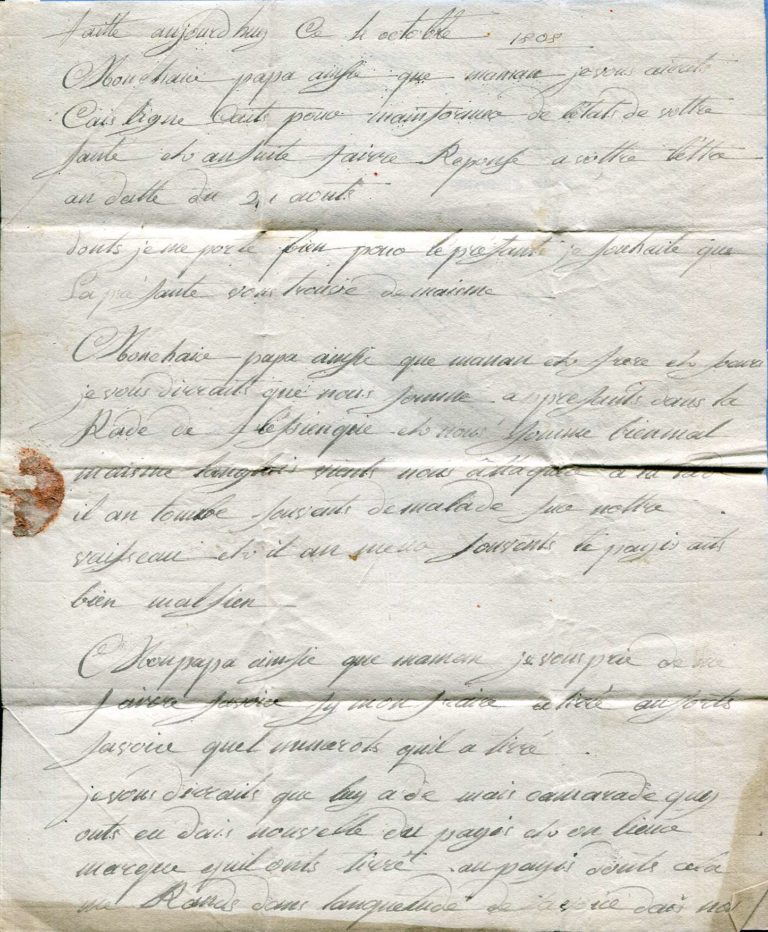 faitte aujourdhuy Ce 4 octobre 1808
Mon chaire papa ainsie que maman je vous aicrits
Cais ligne Cants pour mainformer de létats de vottre
santé et ansuite faivre Reponse a vôttre lettre
an datte du 21 aouts
donts je me porte bien pour le présants je souhaite que
La présante vous trouve de maisme
Mon chaire papa ainsie que maman et frere et soeur
je vous dirraits que nous somme apresants dans la
Rade de flésiengue et nous somme bien mal
maisme langlais vients nous attaquer
il an tombe souvants de malade sur nottre
vaisseau et il an meur souvents le payis aits
bien malsien
Mon papa ainsie que maman je vous prie de me
faivre savoir sy mon fraire a tiré au sorts
savoir quel numerots quil a tiré
je vous dirraits que luy a de mais camarade quy
onts eu dais nouvelle du payis et on leure
marque quil onts tirré au payis donts cela
me Rands dans languetude de savoire dais nos